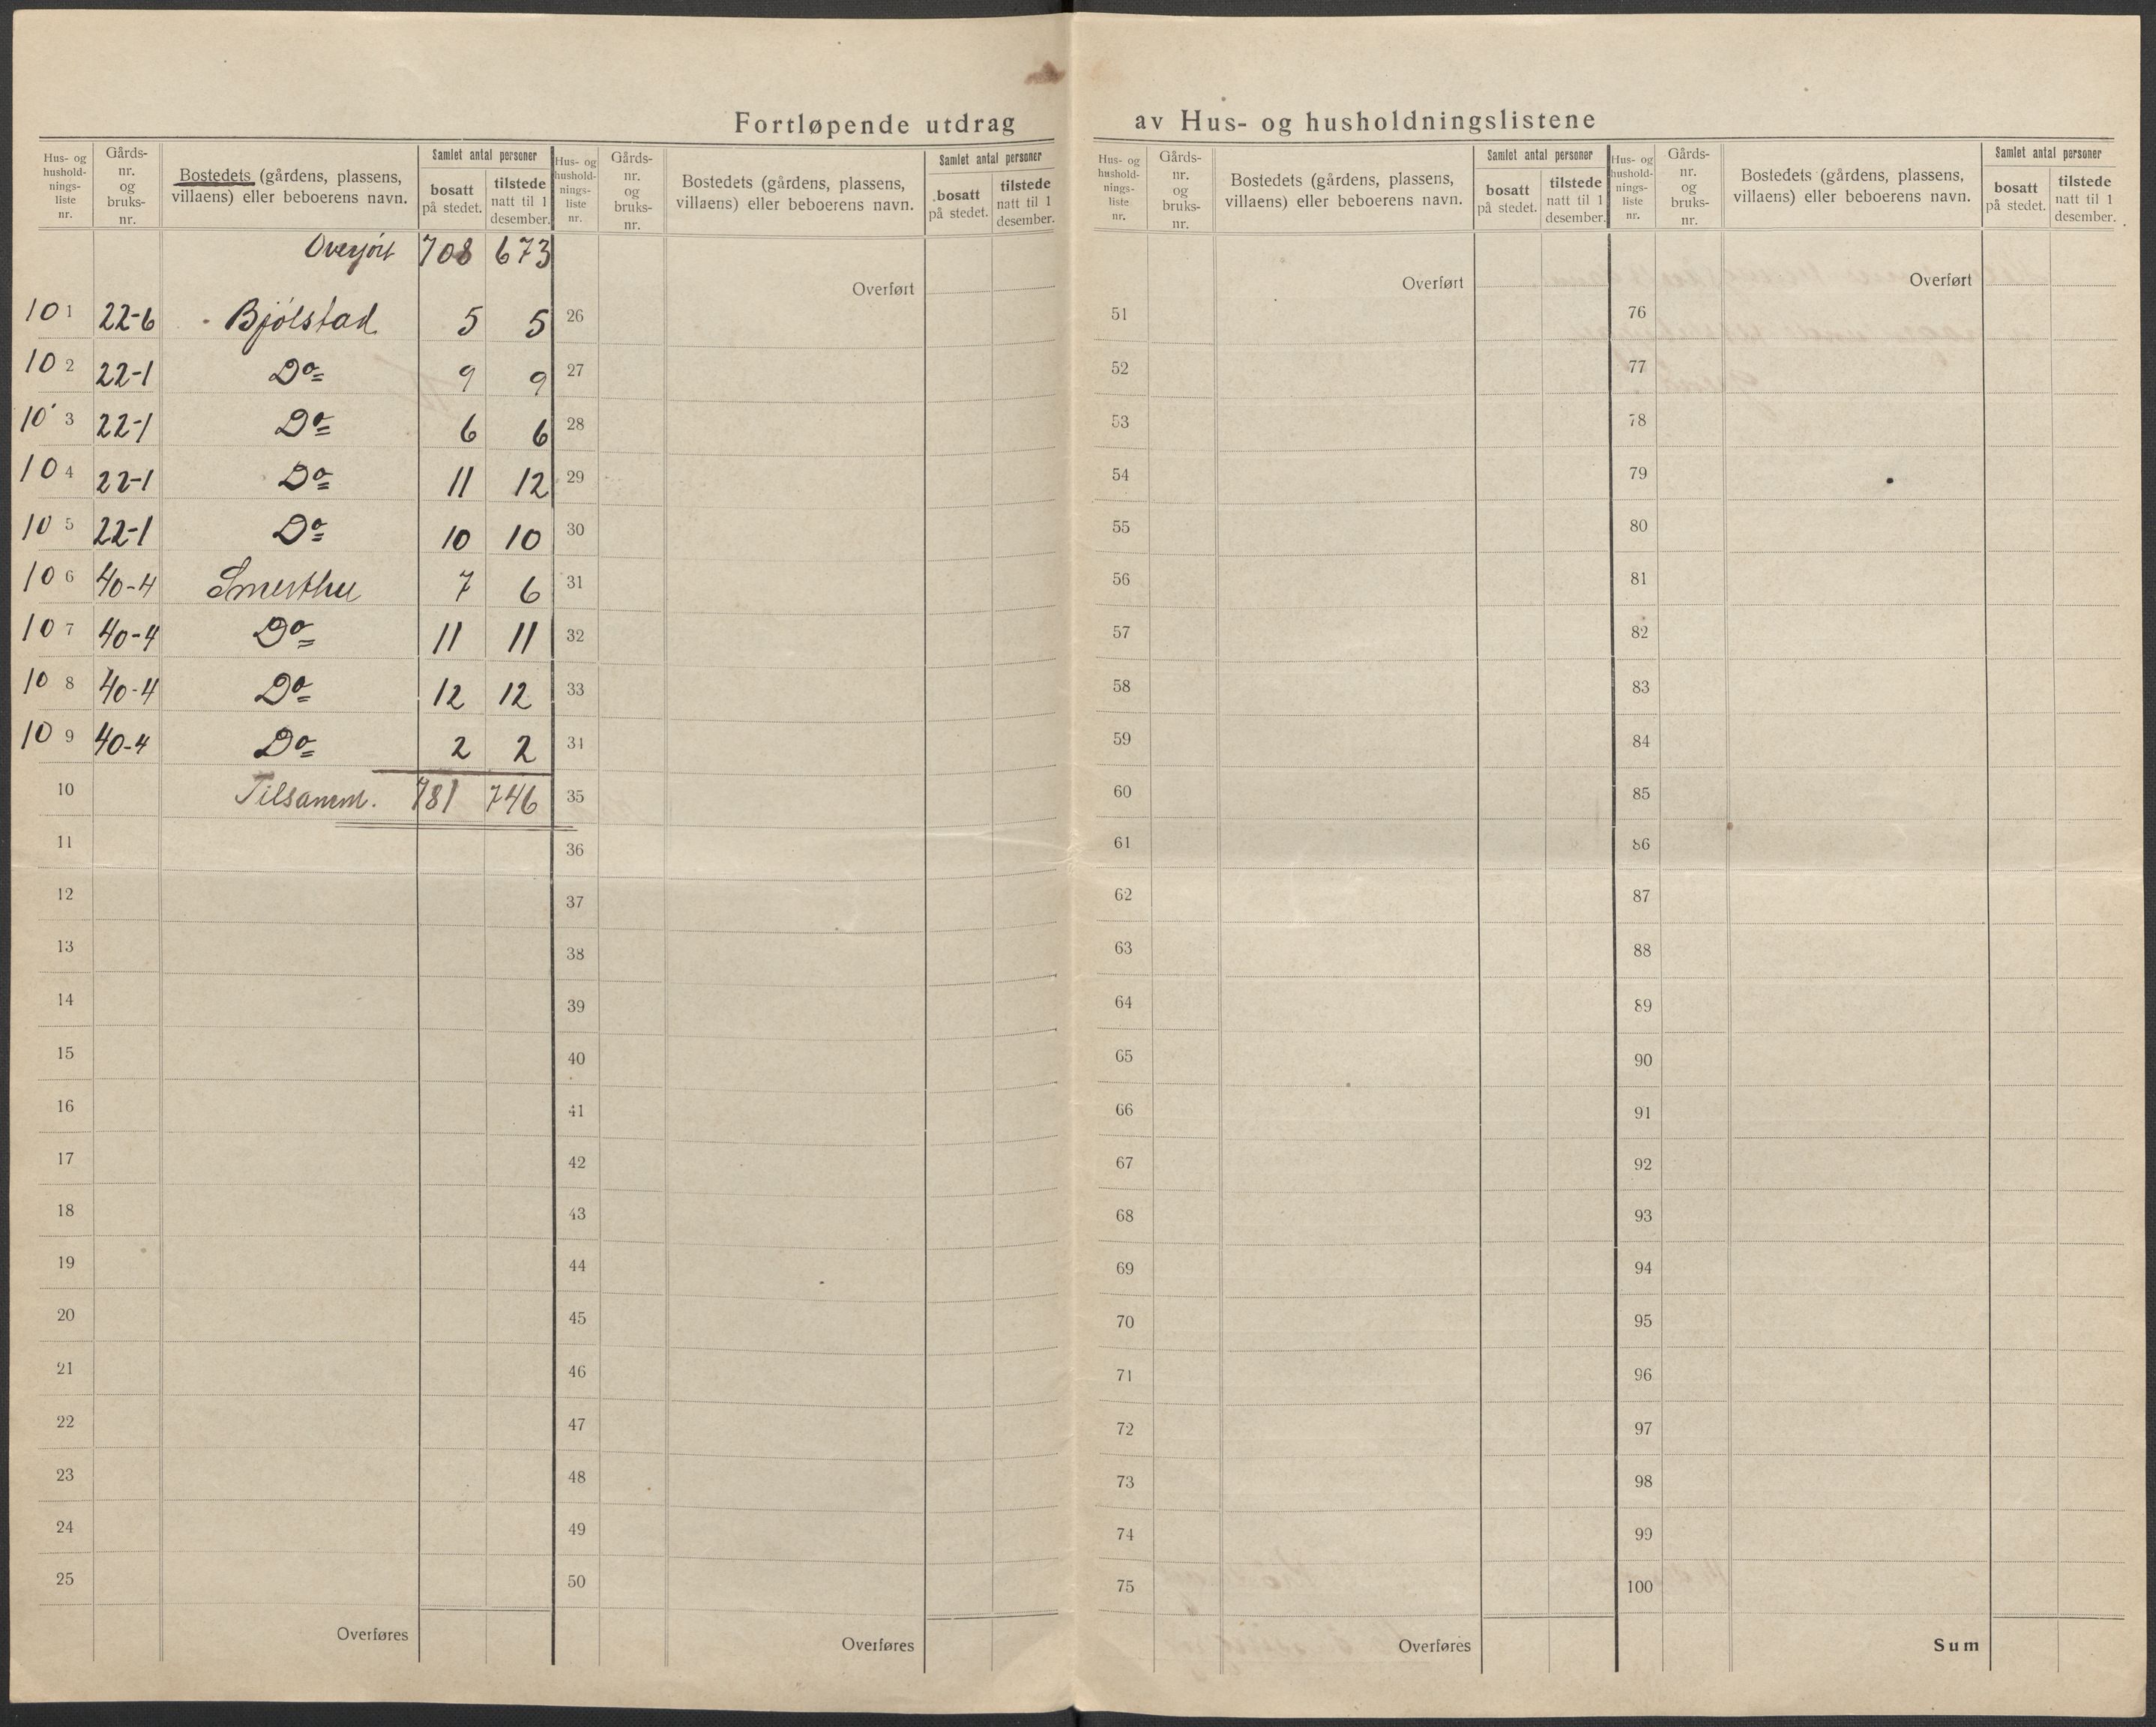 Fortløpende utdrag av Hus- og husholdningslistene
Hus- og hushold-nings-liste nr. | Gårds-nr. og bruks-nr. | Bostedets (gårdens, plassens, villaens) eller beboerens navn. | Samlet antal personer | bosatt på stedet. | tilstede natt til 1 desember.
Overført 708 673
101 22-6 Bjølstad 5 5
102 22-1 Do 9 9
103 22-1 Do 6 6
104 22-1 Do 11 12
105 22-1 Do 10 10
106 40-4 Smerthu 7 6
107 40-4 Do 11 11
108 40-4 Do 12 12
109 40-4 Do 2 2
10 Tilsamm. 781 746
11
12
13
14
15
16
17
18
19
20
21
22
23
24
25
Overføres
Hus- og hushold-nings-liste nr. | Gårds-nr. og bruks-nr. | Bostedets (gårdens, plassens, villaens) eller beboerens navn. | Samlet antal personer | bosatt på stedet. | tilstede natt til 1 desember.
Overført
26
27
28
29
30
31
32
33
34
35
36
37
38
39
40
41
42
43
44
45
46
47
48
49
50
Overføres
Hus- og hushold-nings-liste nr. | Gårds-nr. og bruks-nr. | Bostedets (gårdens, plassens, villaens) eller beboerens navn. | Samlet antal personer | bosatt på stedet. | tilstede natt til 1 desember.
Overført
51
52
53
54
55
56
57
58
59
60
61
62
63
64
65
66
67
68
69
70
71
72
73
74
75
Overføres
Hus- og hushold-nings-liste nr. | Gårds-nr. og bruks-nr. | Bostedets (gårdens, plassens, villaens) eller beboerens navn. | Samlet antal personer | bosatt på stedet. | tilstede natt til 1 desember.
Overført
76
77
78
79
80
81
82
83
84
85
86
87
88
89
90
91
92
93
94
95
96
97
98
99
100
Sum